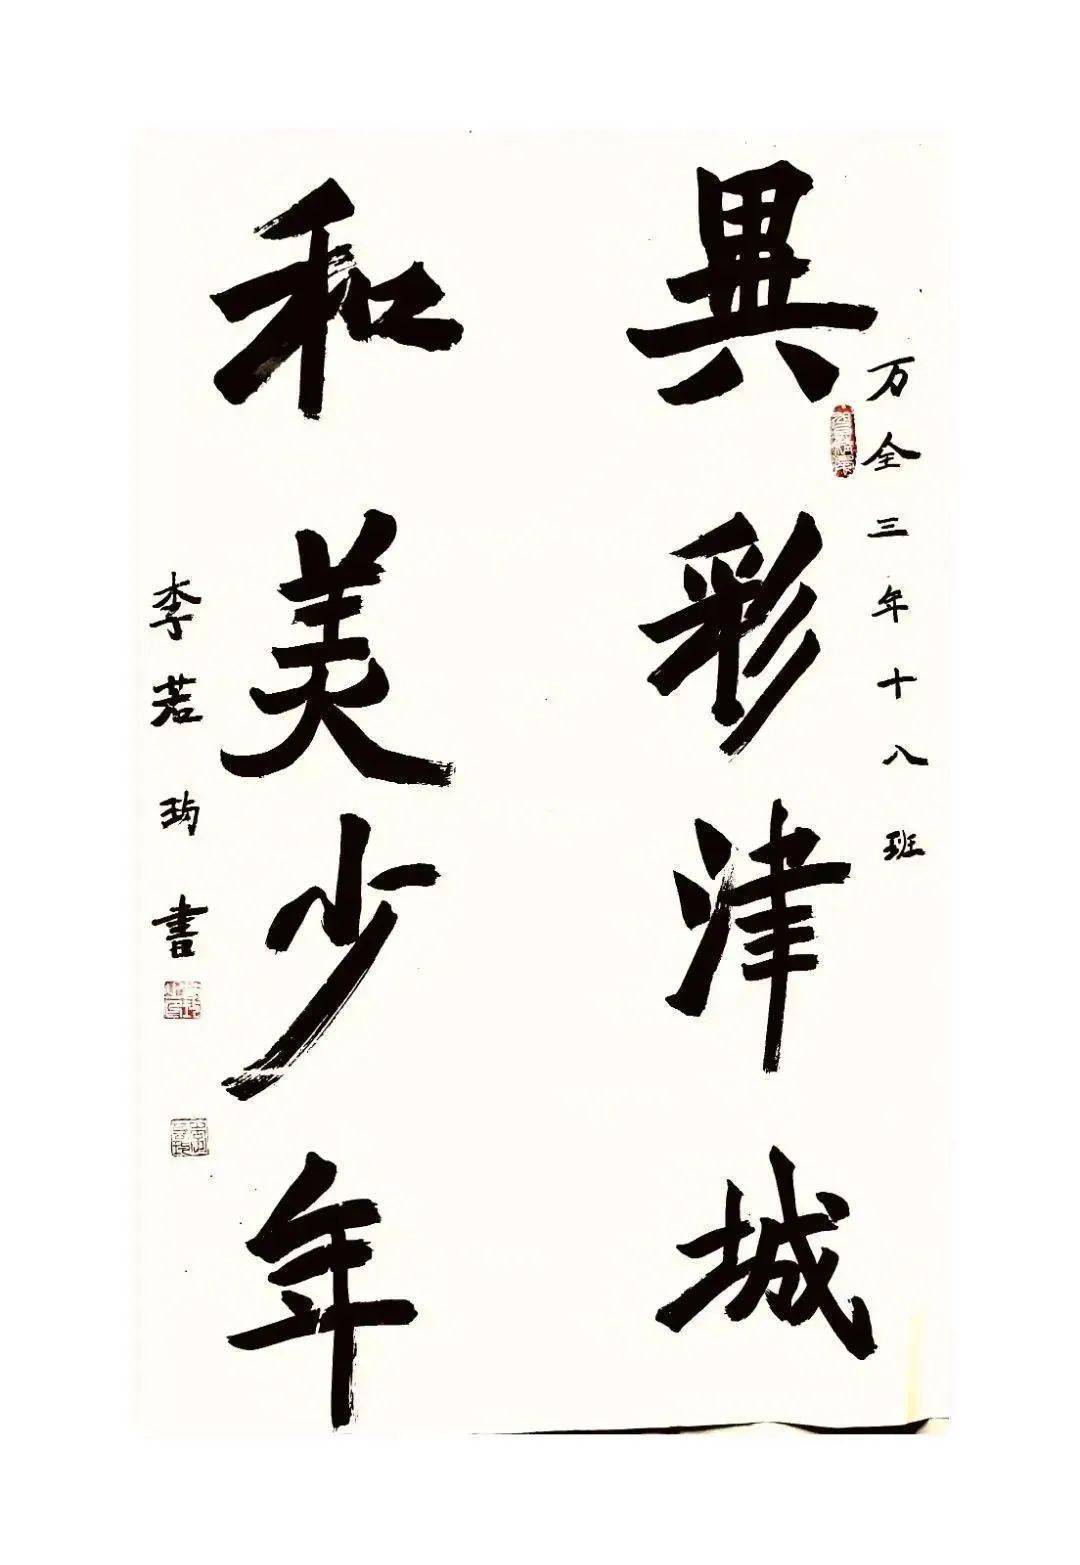 異彩津城
万全三年十八班
和美少年
李若玽書